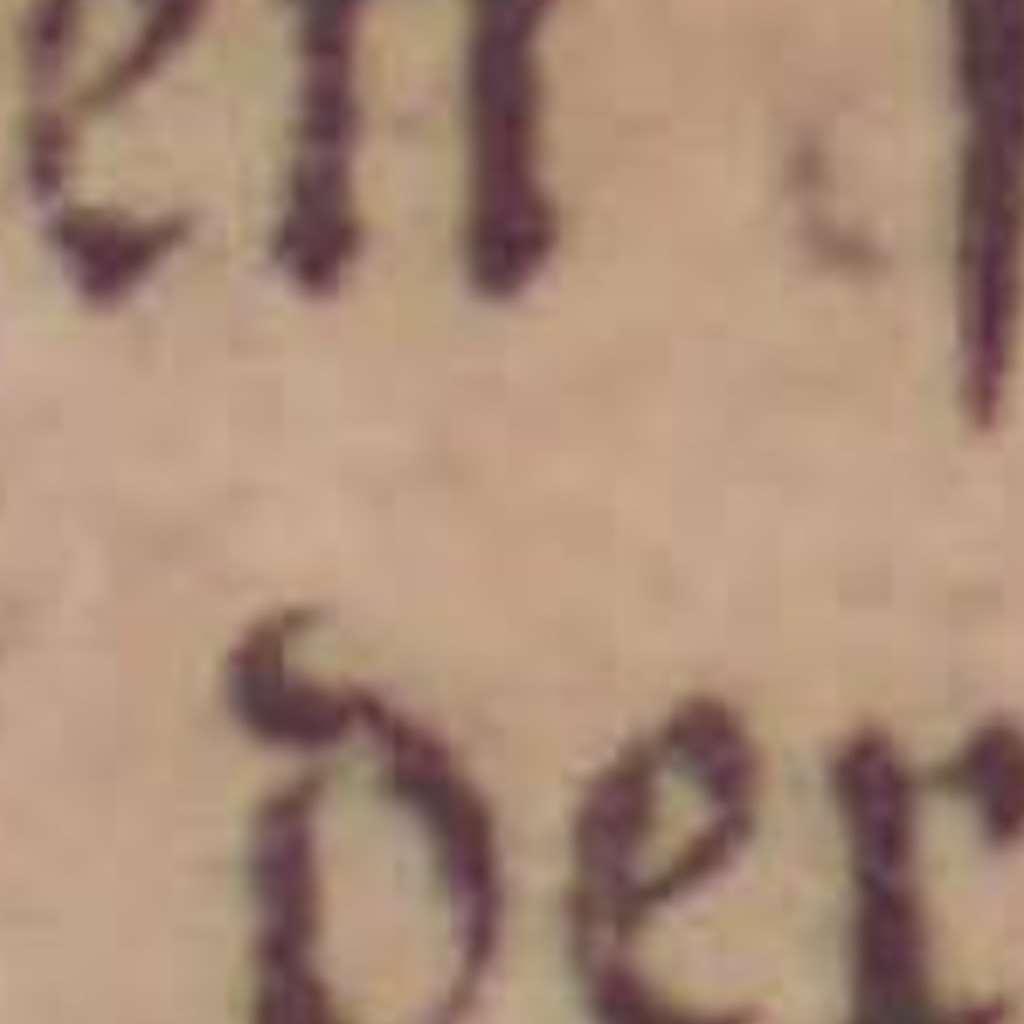 en
der